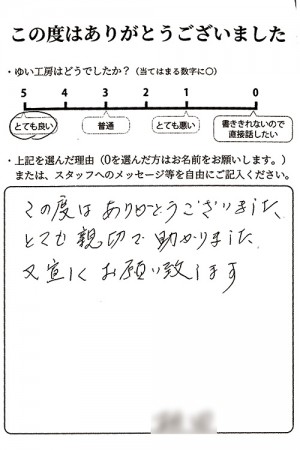 この度はありがとうございました
・ゆい工房はどうでしたか？（当てはまる数字に○）
5 4 3 2 1 0
とても良い 普通 とても悪い 書ききれないので直接話したい
・上記を選んだ理由（0を選んだ方はお名前をお願いします。）
または、スタッフへのメッセージ等を自由にご記入ください。
この度は ありがとうございました
とても 親切で 助かりました
又宜しく お願い致します